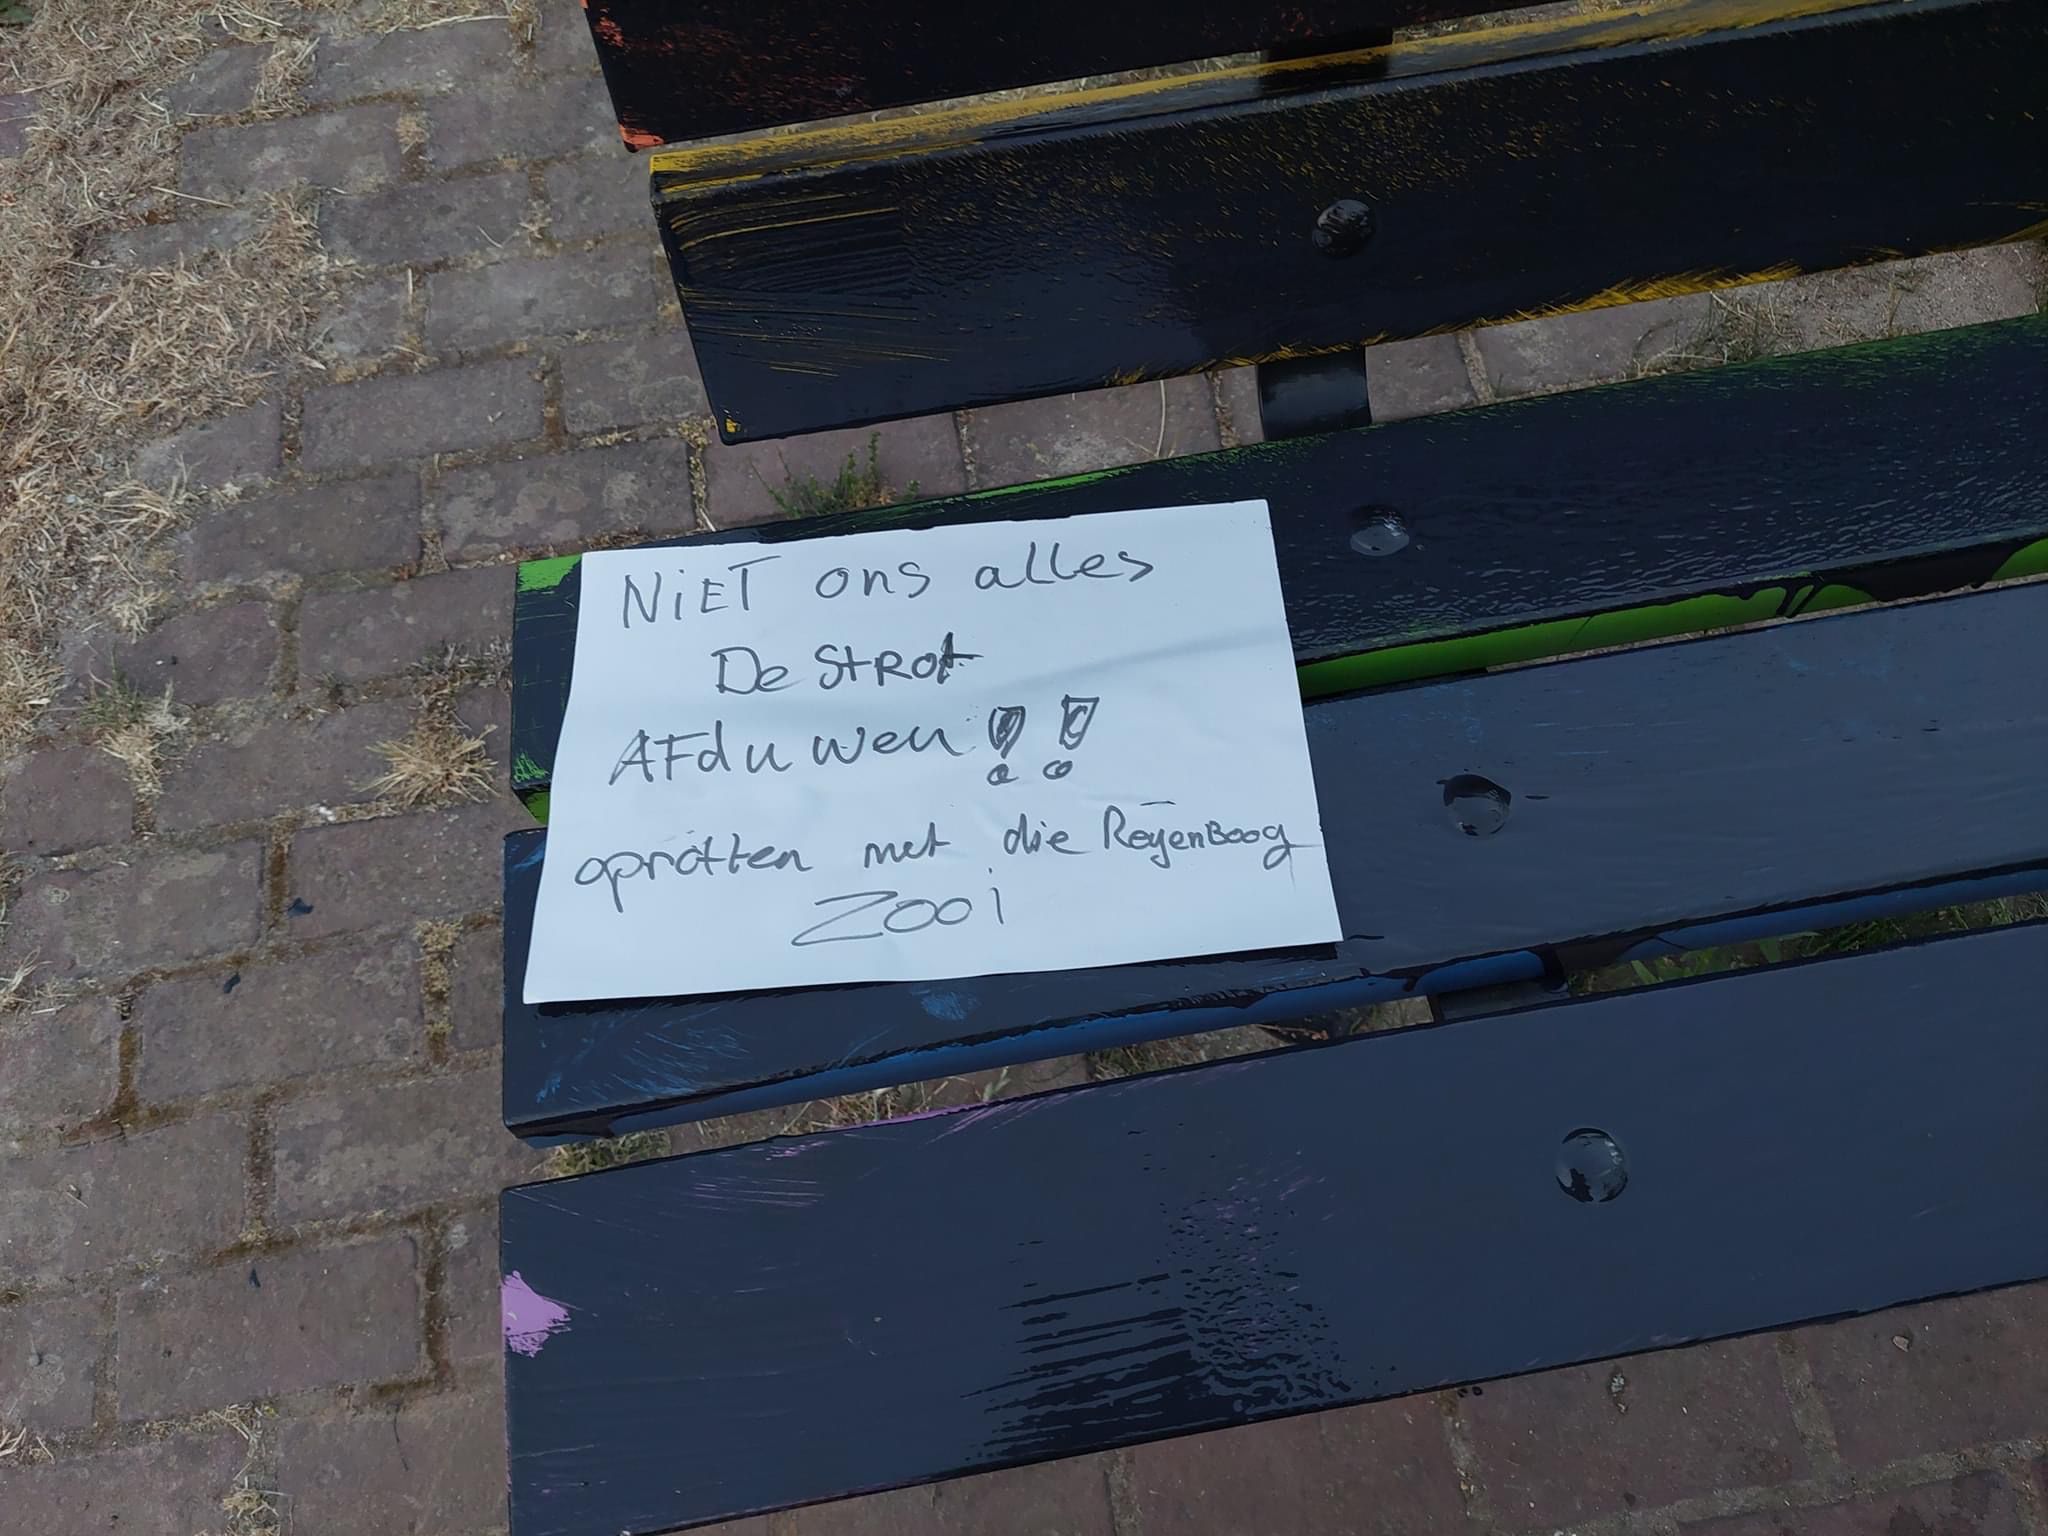 NiET ons alles
De Strot
AFduwen!!
oprotten met die RegenBoog
Zooi